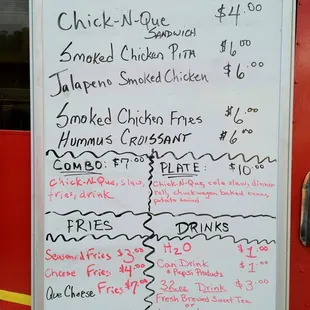 Chick-N-Que $4.00
Sandwich
Smoked Chicken Pita $6.00
Jalapeno Smoked Chicken $6.00
Smoked Chicken Fries $6.00
Hummus Croissant $6.00
Combo: $7.00
Chick-N-Que, slaw,
fries, drink
Plate: $10.00
Chick-N-Que, cole slaw, dinner
roll, chuckwagon baked beans,
potato salad
Fries
Seasoned Fries $3.00
Cheese Fries $4.00
Que Cheese Fries $7.00
Drinks
H2O $1.00
Can Drink $1.00
* Pepsi Products
32 oz Drink $3.00
Fresh Brewed Sweet Tea
or